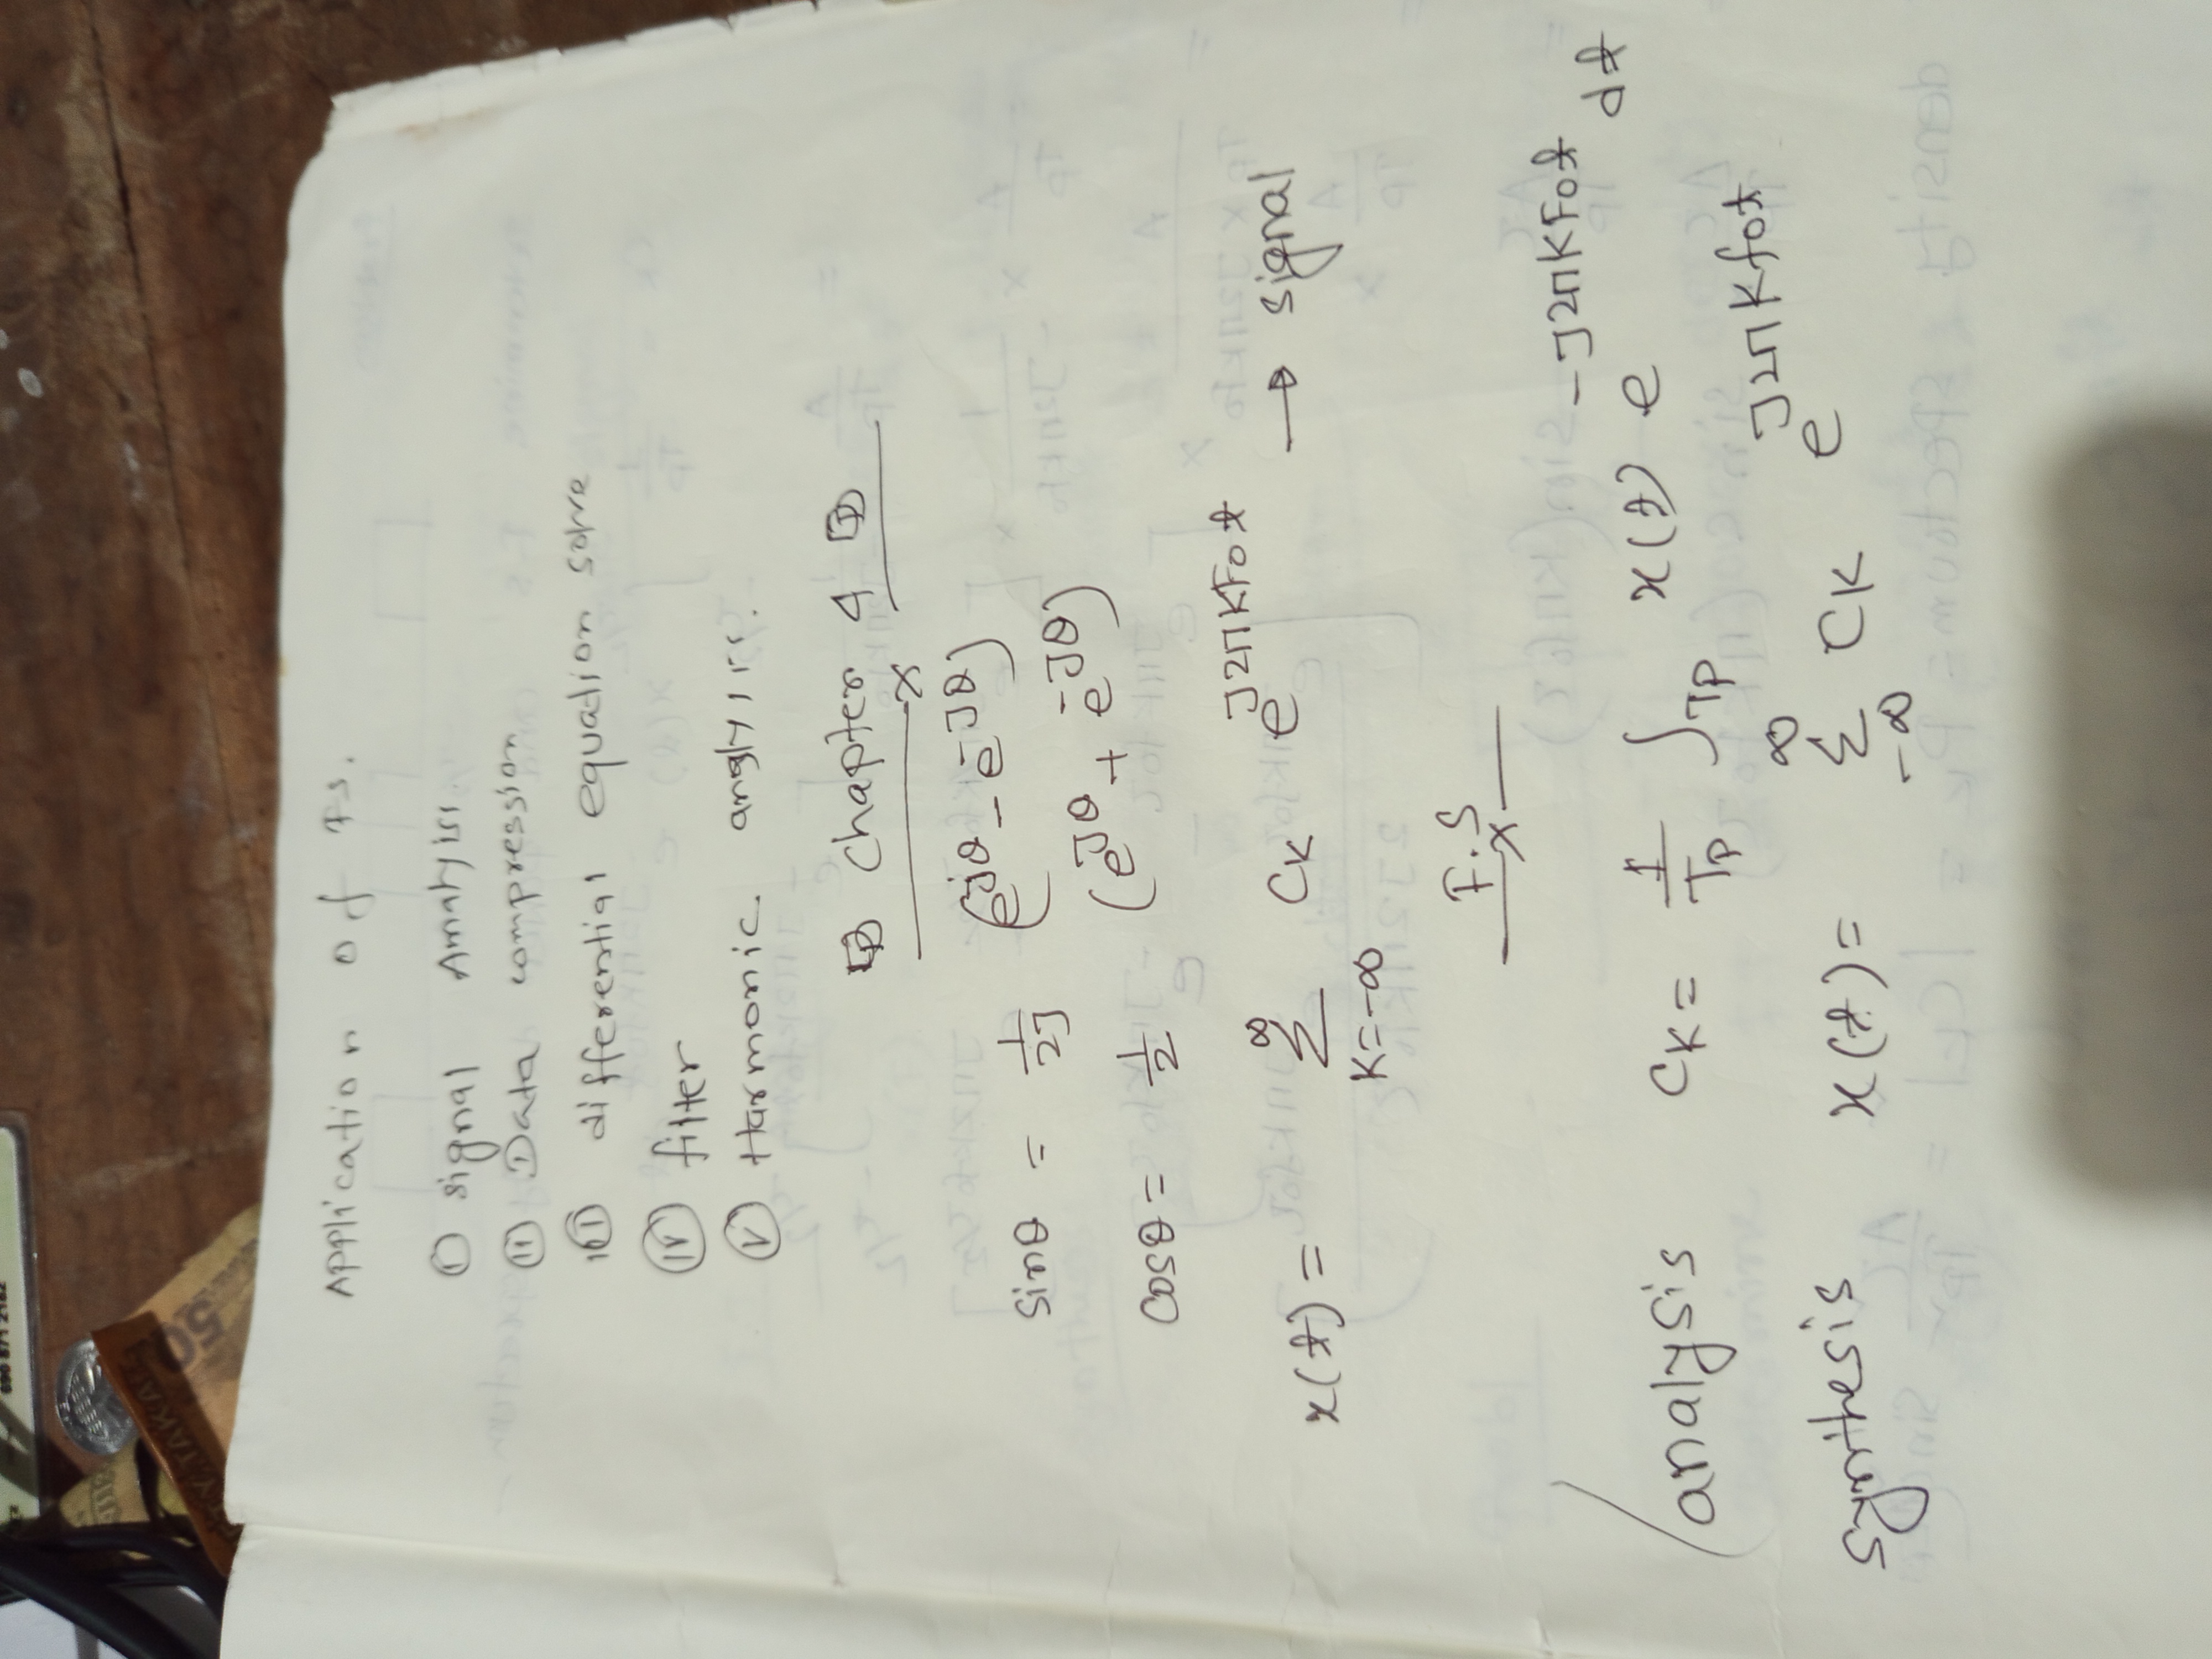 690 871 2182
FIFTY TAKA
50
Application of FS.
(i) signal Analysis.
(ii) Data compression
(iii) differential equation solve
(iv) filter
(v) Harmonic analysis.
Chapter 4
x
sinθ = 1/2J (e^jθ - e^-Jθ)
cosθ = 1/2 (e^Jθ + e^-Jθ)
x(t) = ∞ Σ K=-∞ CK e^J2πKF0t → signal
F.S
x
analysis CK = 1/Tp ∫Tp x(t) e^-J2πKF0t dt
synthesis x(t) = ∞ Σ -∞ CK e^J2πKf0t